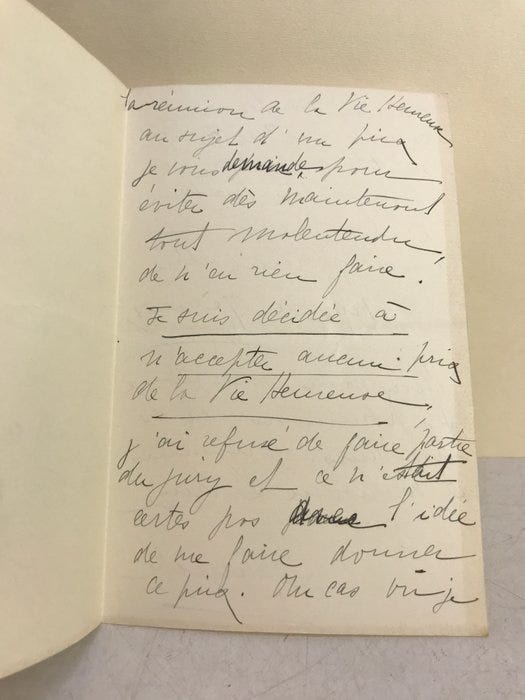 la réunion de la Vie Heureuse
au sujet d'un prix
je vous demande pour
éviter dès maintenant
tout malentendu,
de n'en rien faire.
Je suis décidée à
n'accepter aucun prix
de la Vie Heureuse,
j'ai refusé de faire partie
du jury et ce n'était
certes pas avec l'idée
de me faire donner
ce prix. Au cas où je